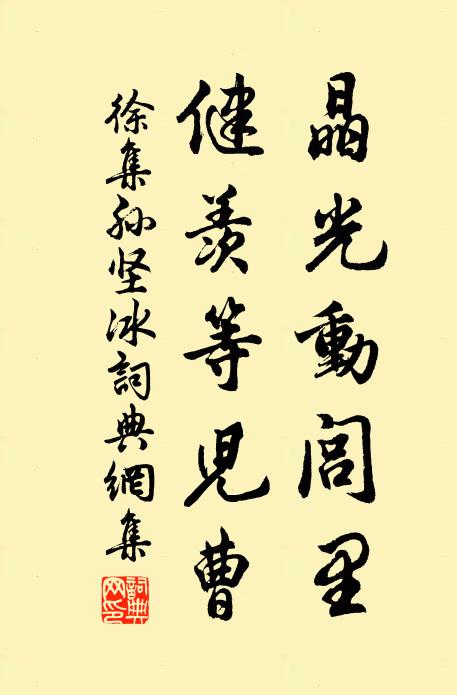 晶光動閭里
健羨等兒曹
徐集孫堅冰詞典網集
詞典網印